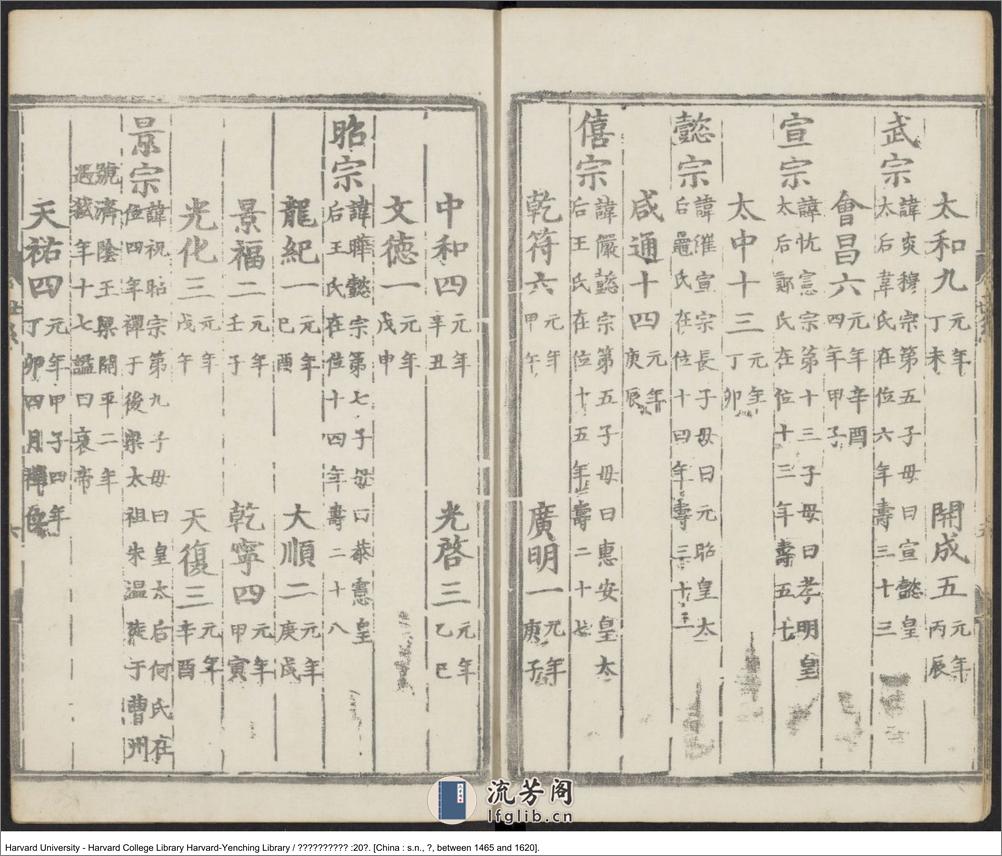 太和九 元年丁未 開成五 元年丙辰
武宗 諱炎穆宗第五子母曰宣懿皇太后韋氏在位六年壽三十三
會昌六 元年辛酉四年甲子
宣宗 諱忱憲宗第十三子母曰孝明皇太后鄭氏在位十三年壽五十
太中十三 元年丁卯
懿宗 諱漼宣宗長子母曰元昭皇太后鼂氏在位十四年壽三十三
咸通十四 元年庚辰
僖宗 諱儼懿宗第五子母曰惠安皇太后王氏在位十五年壽二十七
乾符六 元年甲午 廣明一 元年庚子
中和四 元年辛丑 光啓三 元年乙巳
文德一 元年戊申
昭宗 諱曄懿宗第七子母曰恭憲皇后王氏在位十四年壽二十八
龍紀一 元年己酉 大順二 元年庚戌
景福二 元年壬子 乾寧四 元年甲寅
光化三 元年戊午 天復三 元年辛酉
景宗 諱祝昭宗第九子母曰皇太后何氏在位四年禪于後梁太祖朱温 于曹州
號濟陰王梁開平二年遇弑年十七諡曰哀帝
天祐四 元年甲子四年丁卯四月禪
世系
六
流芳阁
lfglib.cn
Harvard University - Harvard College Library Harvard-Yenching Library / ?????????? :20?. [China : s.n., ?, between 1465 and 1620].